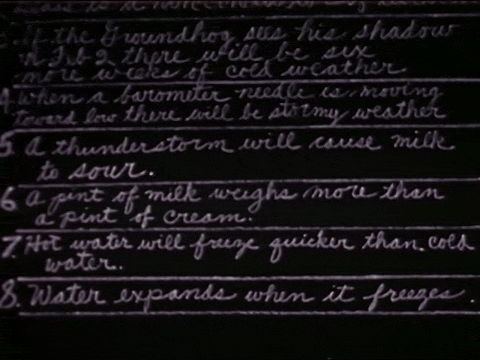 3. If the Groundhog sees his shadow
on Feb 2 there will be six
more weeks of cold weather.
4. When a barometer needle is moving
toward low there will be stormy weather
5. A thunderstorm will cause milk
to sour.
6. A pint of milk weighs more than
a pint of cream.
7. Hot water will freeze quicker than cold
water.
8. Water expands when it freezes.